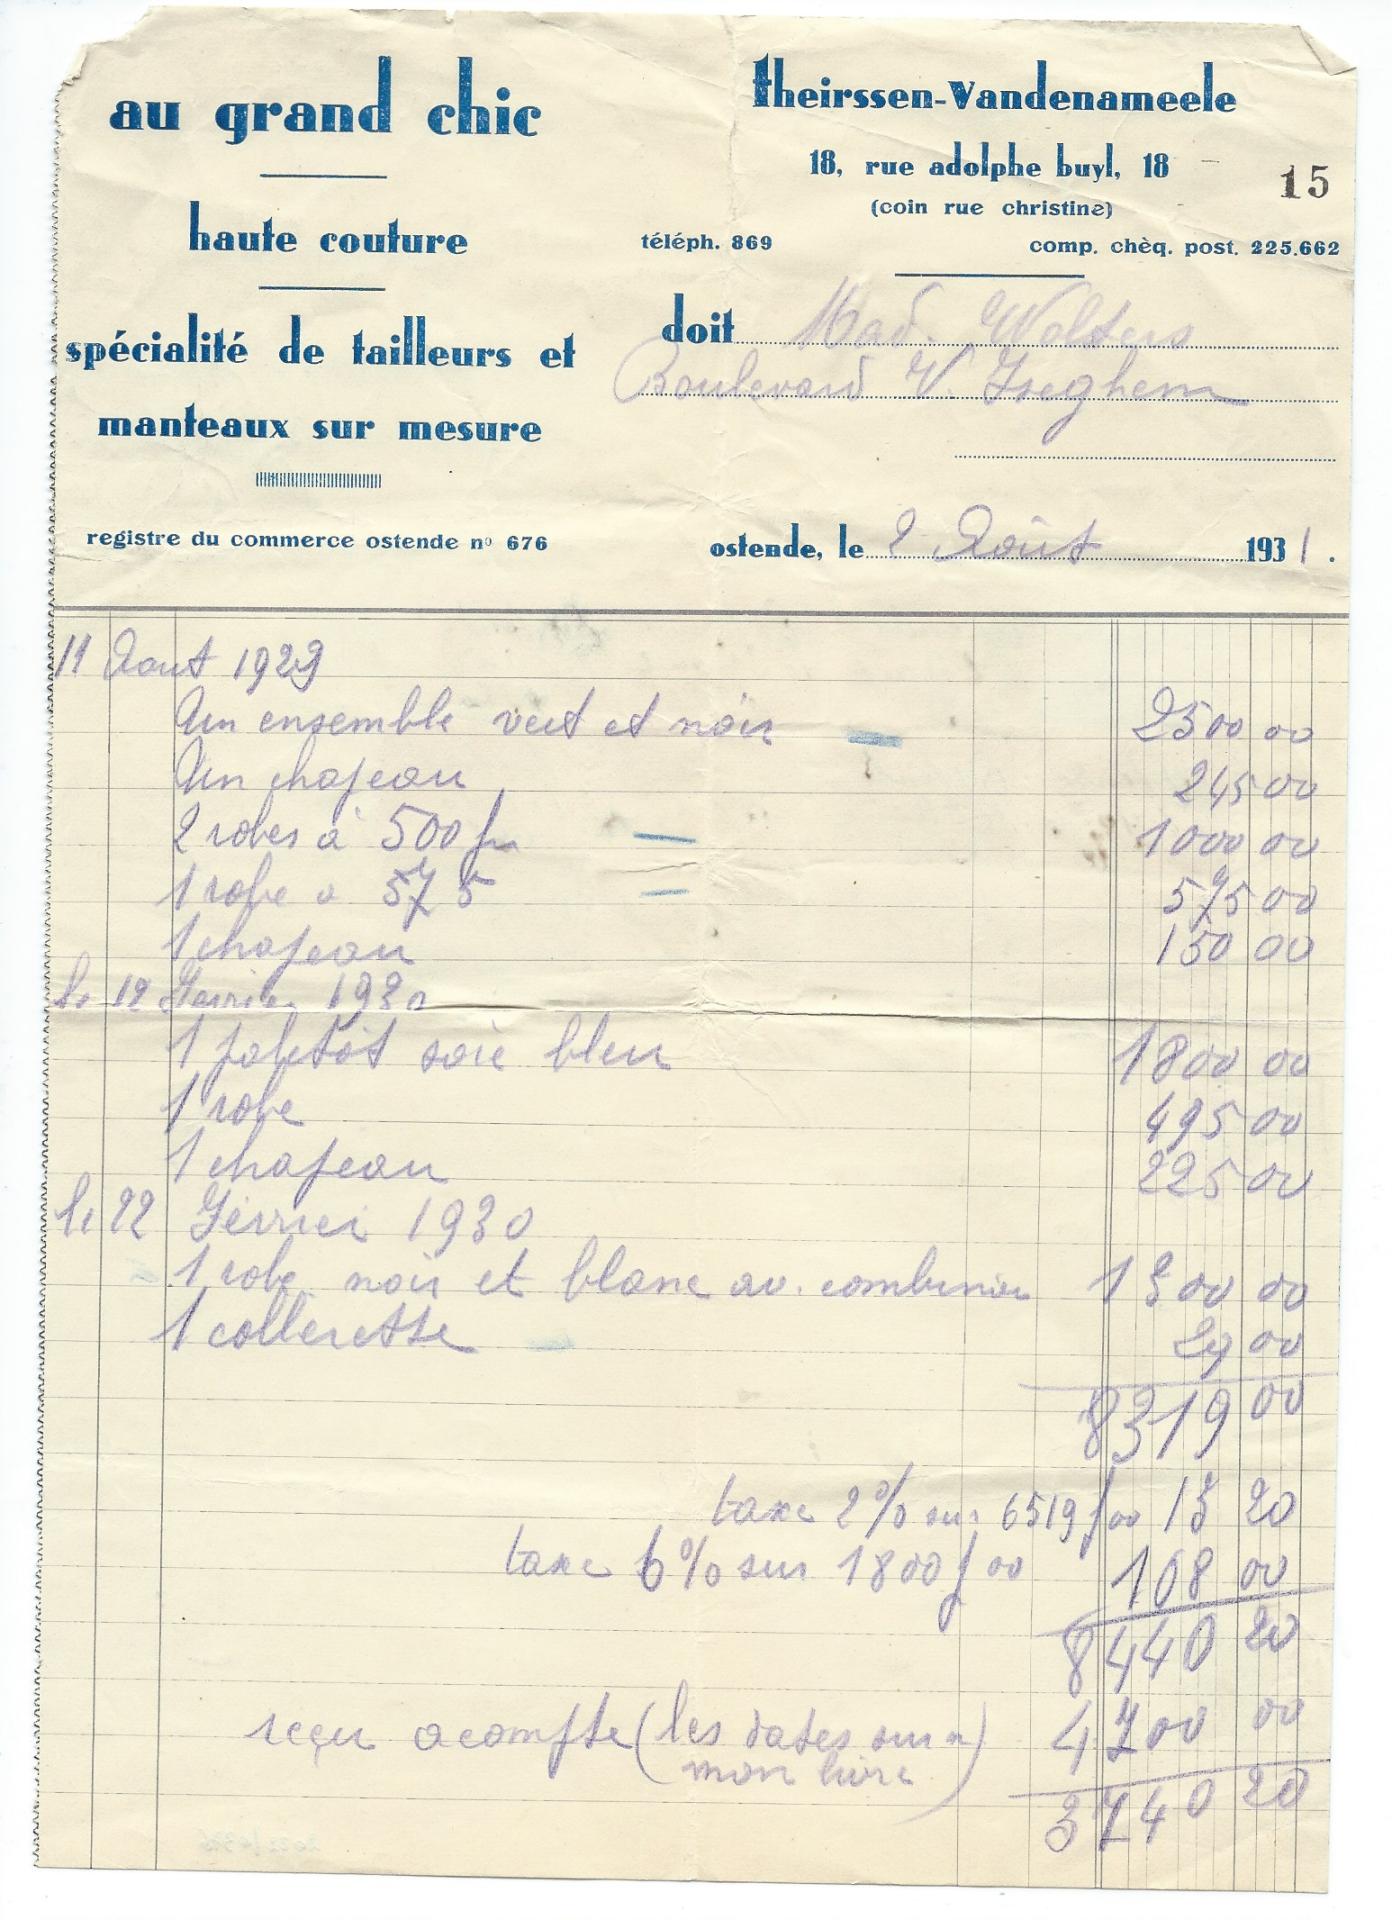 au grand chic
haute couture
spécialité de tailleurs et
manteaux sur mesure
registre du commerce ostende nº 676
theirssen-Vandenameele
18, rue adolphe buyl, 18
15
(coin rue christine)
téléph. 869 comp. chèq. post. 225.662
doit Mad. Wolters
Boulevard V. Iseghem
ostende, le 2 Août 1931.
11 Aout 1929
Un ensemble vert et noir 2500 00
Un chapeau 245 00
2 robes à 500 fr 1000 00
1 robe a 575 575 00
1 chapeau 150 00
le 12 Février 1930
1 paletot soie bleu 1800 00
1 robe 495 00
1 chapeau 225 00
le 22 Février 1930
1 robe noir et blanc av. 1300 00
1 collerette 29 00
8319 00
taxe 2% sur 6519 f 00 13 20
taxe 6% sur 1800 f 00 108 00
8440 20
reçu acompte (les dates sur 4700 00
mon livre)
3740 20